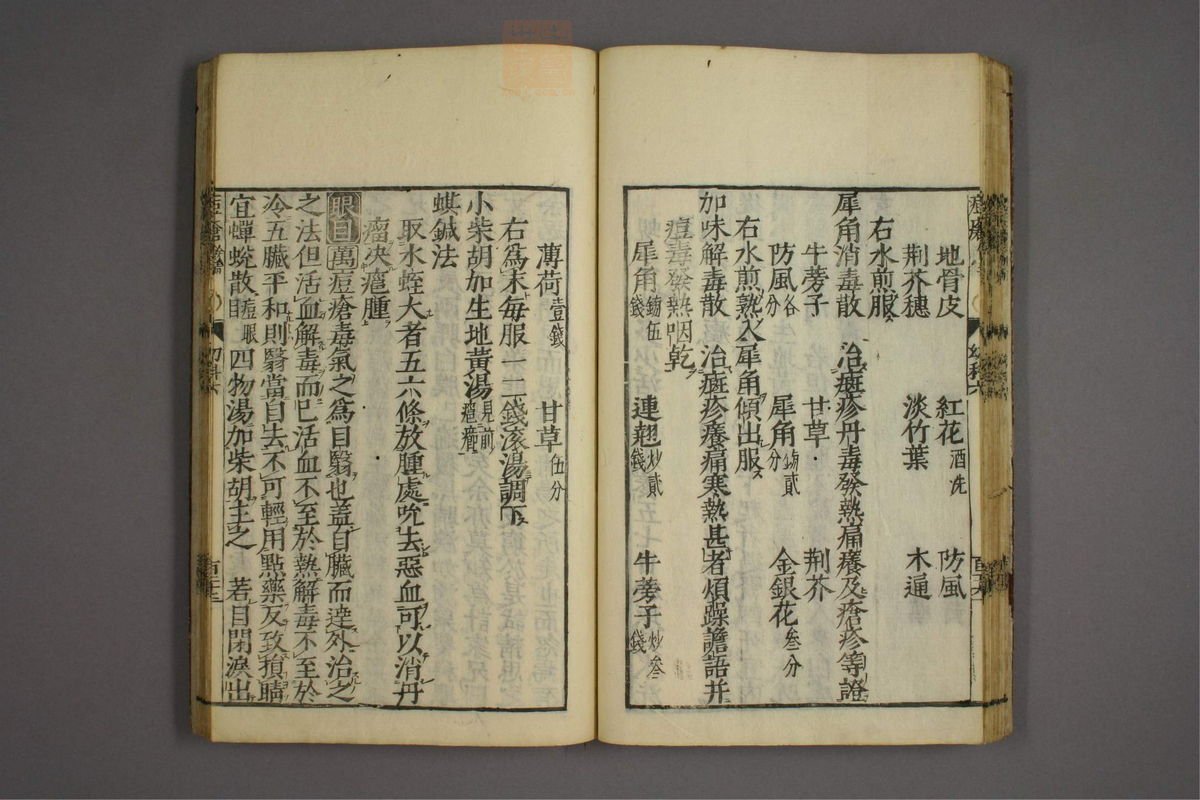 地骨皮　紅花酒洗　防風
荆芥穗　淡竹葉　木通
右水煎服
犀角消毒散　治癍疹丹毒發熱痛癢及瘡疹等證
牛蒡子　甘草　荆芥
防風各分　犀角鎊貳分　金銀花叁分
右水煎熟入犀角傾出服
加味解毒散　治癍疹癢痛寒熱甚者煩躁譫語并
痘毒發熱咽乾
犀角鎊伍錢　連翹炒貳錢　牛蒡子炒叁錢
薄荷壹錢　甘草伍分
右爲末每服一二錢滚湯調下
小柴胡加生地黃湯見前
蜞鍼法
取水蛭大者五六條放腫處吮去惡血可以消丹
瘤決癰腫
眼目萬痘瘡毒氣之爲目翳也蓋自臟而達外治之
之法但活血解毒而已活血不至於熱解毒不至於
冷五臟平和則翳當自去不可輕用點藥反致損睛
宜蟬蛻散痘眼目四物湯加柴胡主之　若目閉淚出
幼科六